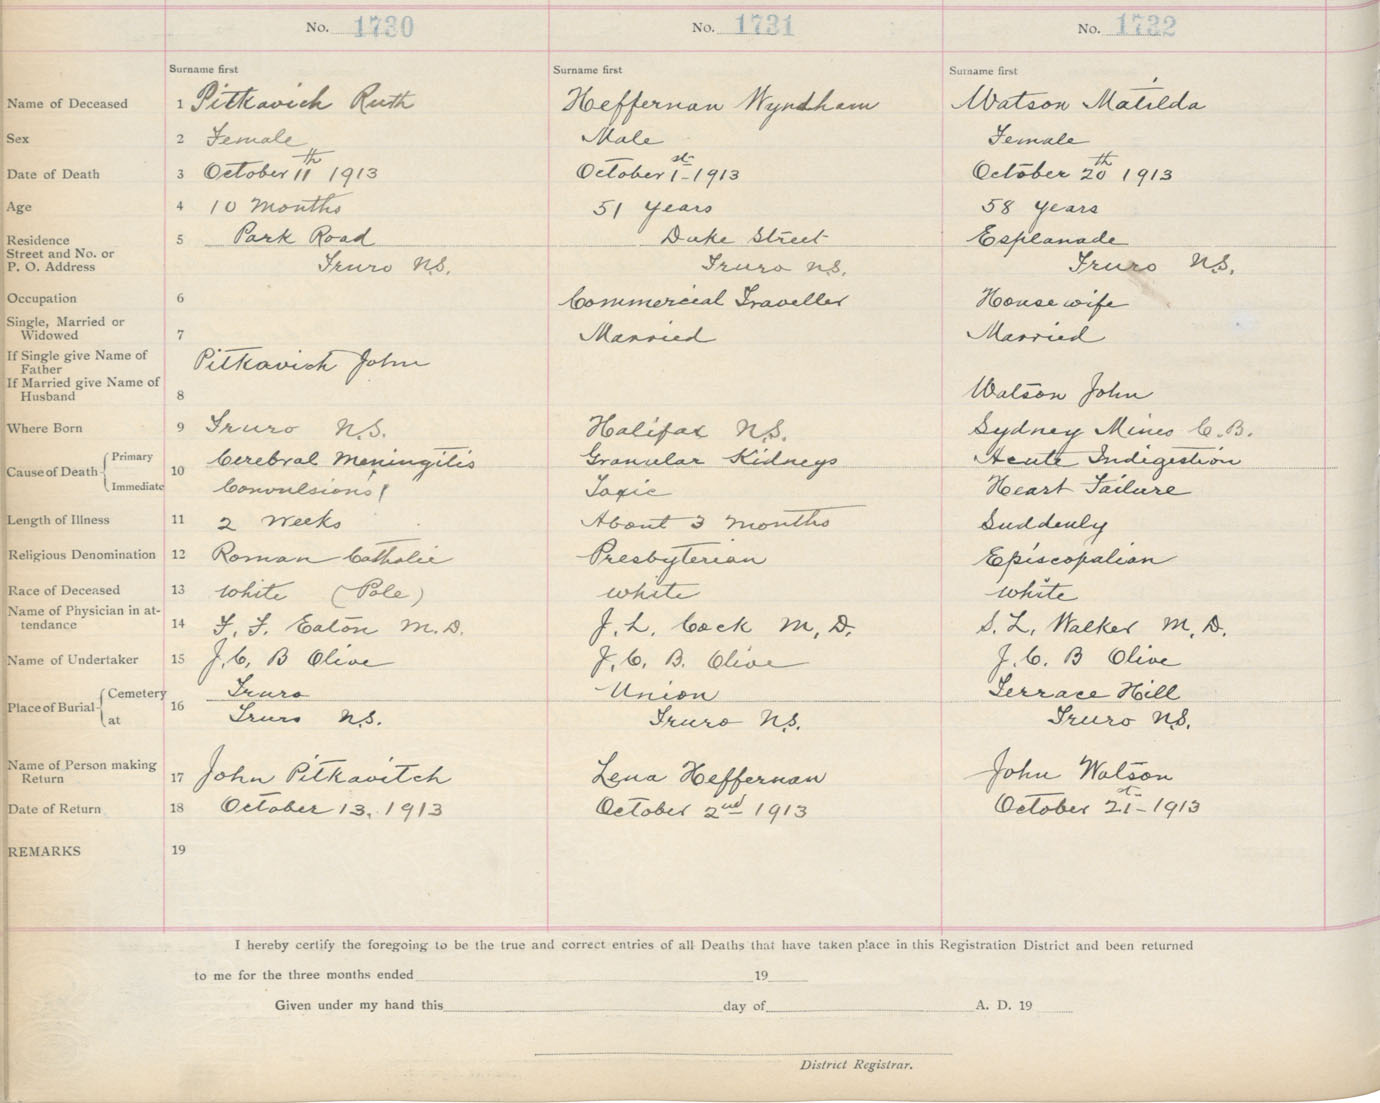 No. 1730 No. 1731 No. 1732
Surname first Surname first Surname first
Name of Deceased 1 Pitkavich Ruth Heffernan Wyndham Watson Matilda
Sex 2 Female Male Female
Date of Death 3 October 11th 1913 October 1st 1913 October 20th 1913
Age 4 10 Months 51 Years 58 Years
Residence 5 Park Road Duke Street Esplanade
Street and No. or
P. O. Address Truro N.S. Truro N.S. Truro N.S.
Occupation 6 Commercial Traveller Housewife
Single, Married or
Widowed 7 Married Married
If Single give Name of
Father Pitkavich John
If Married give Name of
Husband 8 Watson John
Where Born 9 Truro N.S. Halifax N.S. Sydney Mines C.B.
Cause of Death 10 Primary Cerebral Meningitis Granular Kidneys Acute Indigestion
Immediate Convulsions Toxic Heart Failure
Length of Illness 11 2 Weeks About 3 Months Suddenly
Religious Denomination 12 Roman Catholic Presbyterian Episcopalian
Race of Deceased 13 White (Pole) White White
Name of Physician in at-
tendance 14 F. F. Eaton M.D. J. L. Cock M.D. S. L. Walker M.D.
Name of Undertaker 15 J. C. B Olive J. C. B. Olive J. C. B Olive
Place of Burial 16 Cemetery Truro Union Terrace Hill
at Truro N.S. Truro N.S. Truro N.S.
Name of Person making
Return 17 John Pitkavitch Lena Heffernan John Watson
Date of Return 18 October 13, 1913 October 2nd 1913 October 21st 1913
REMARKS 19
I hereby certify the foregoing to be the true and correct entries of all Deaths that have taken place in this Registration District and been returned
to me for the three months ended 19
Given under my hand this day of A. D. 19
District Registrar.